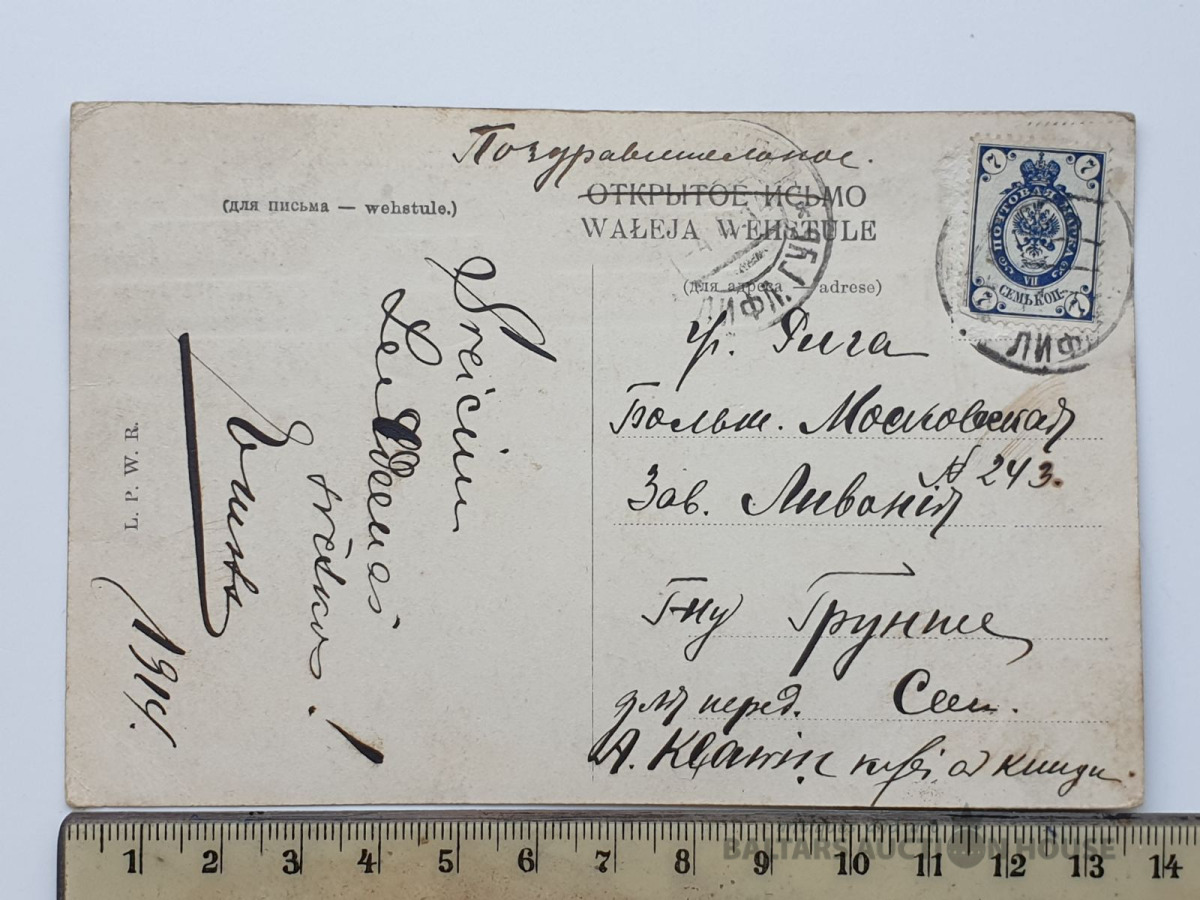 Поздравительное.
ОТКРЫТОЕ ПИСЬМО
WAŁEJA WEHSTULE
(для письма — wehstule.)
(для адреса — adrese)
7 7
ПОЧТОВАЯ МАРКА
VII
СЕМЬ КОП.
7 7
ЛИФЛ. ГУБ.
ЛИФ
Preicim
1914.
L. P. W. R.
гр. Рига
Больш. Московская
№ 243.
Зав. Ливонія
Г-ну Грунте
для перед. Сем.
A. Kławin
1 2 3 4 5 6 7 8 9 10 11 12 13 14
BALTARS AUCTION HOUSE